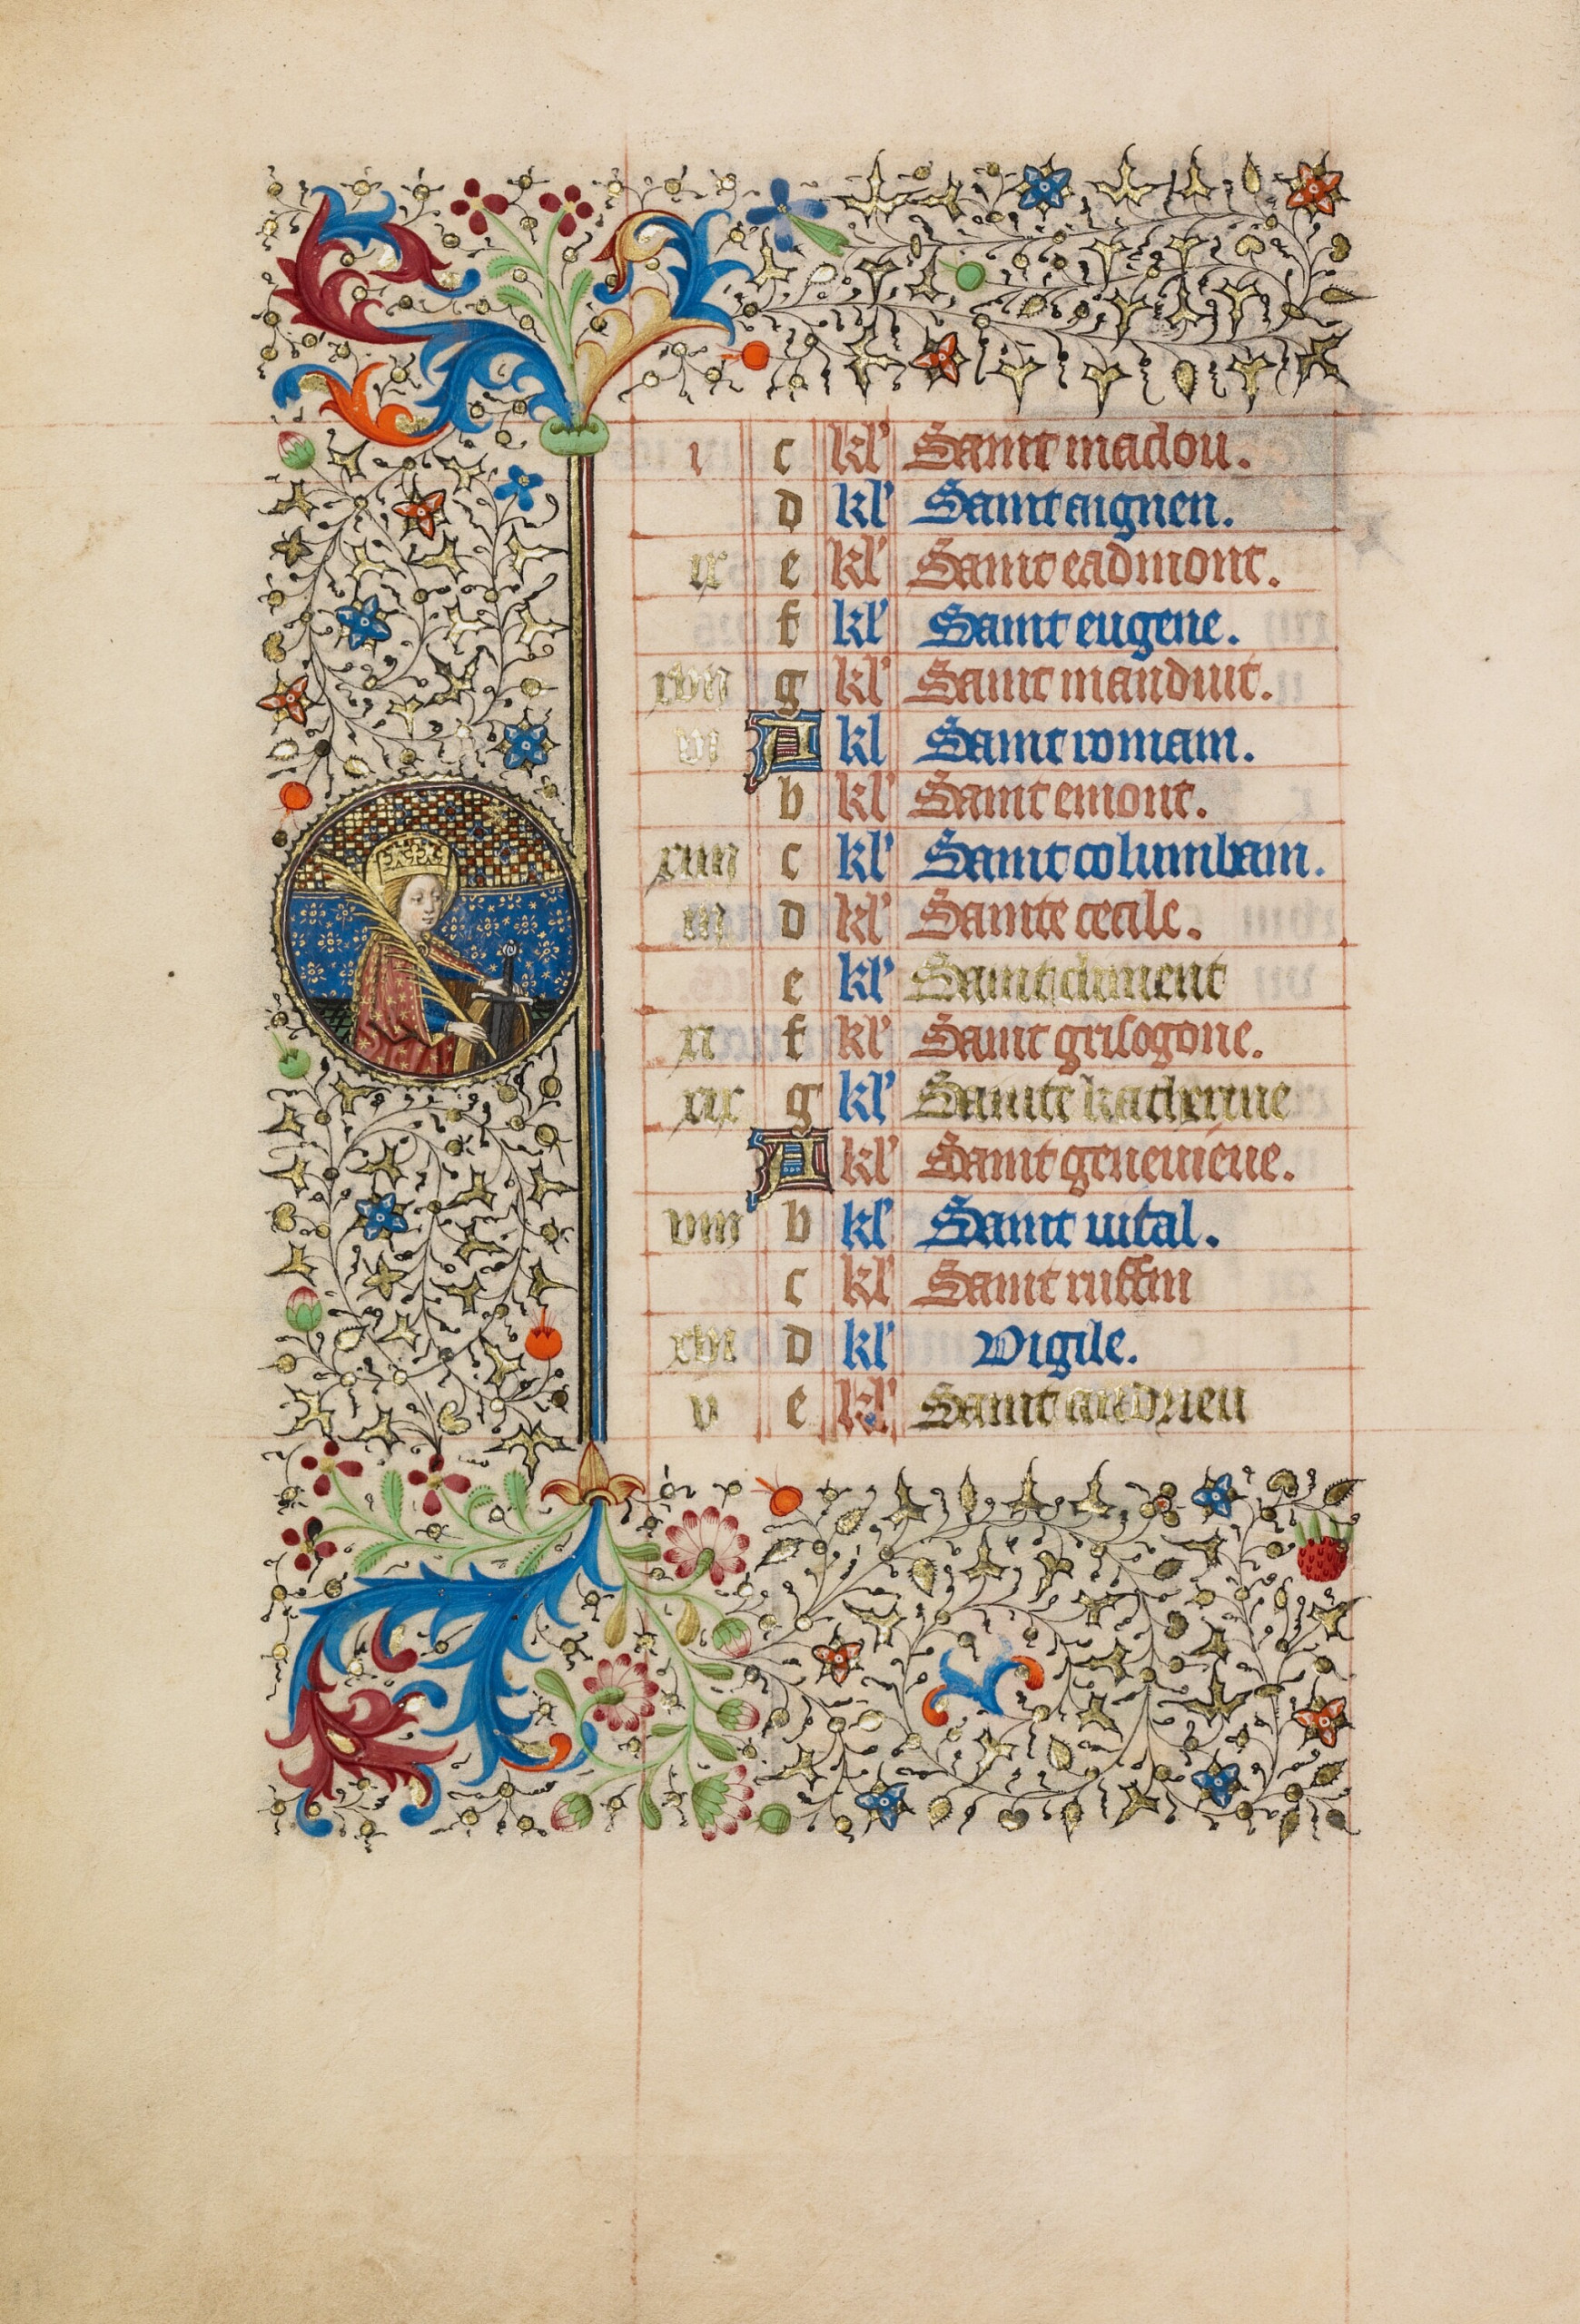 i c kl' Saint madou.
d kl' Saint aignen.
ix e kl' Saint eadmont.
f kl' Saint eugene.
xvii g kl' Saint manduit.
vi A kl Saint romain.
b kl' Saint emont.
xiiii c kl' Saint columbain.
iii d kl' Sainte cecile.
e kl' Saint climent
xi f kl' Saint grisogone.
xix g kl' Sainte katherine
A kl' Saint geneuieue.
viii b kl' Saint uital.
c kl' Saint ruffin
xvi d kl' Vigile.
v e kl' Saint andrieu